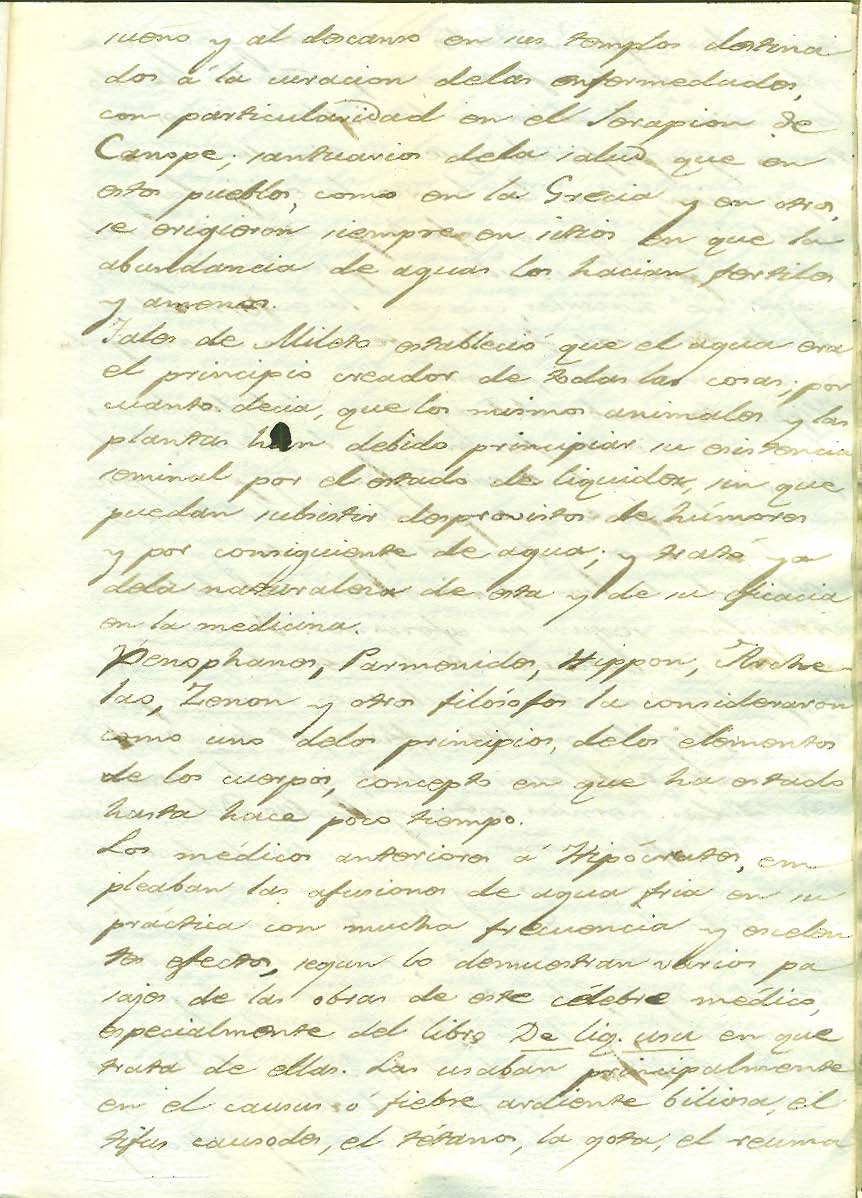 sueño y al descanso en sus templos destina
dos á la curacion delas enfermedades,
con particularidad en el Serapion de
Canope; santuarios dela salud que en
estos pueblos, como en la Grecia y en otros,
se erigieron siempre en sitios en que la
abundancia de aguas los hacian fertiles
y amenos.
Tales de Mileto estableció que el agua era
el principio creador de todas las cosas; por
cuanto decia, que los mismos animales y las
plantas han debido principiar su esistencia
seminal por el estado de liquidez, sin que
puedan subsistir desprovistos de húmores
y por consiguiente de agua; y trató ya
dela naturaleza de esta y de su eficacia
en la medicina.
Xenophanes, Parmenides, Hippon, Arche
lao, Zenon y otros filósofos la consideraron
como uno delos principios, delos elementos
de los cuerpos, concepto en que ha estado
hasta hace poco tiempo.
Los médicos anteriores á Hipócrates, em
pleaban las afusiones de agua fria en su
práctica con mucha frecuencia y escelen
tes efectos, segun lo demuestran varios pa
sajes de las obras de este célebre médico,
especialmente del libro De liq. usu en que
trata de ellas. Las usaban principalmente
en el causus ó fiebre ardiente biliosa, el
tifus causodes, el tétanos, la gota, el reuma